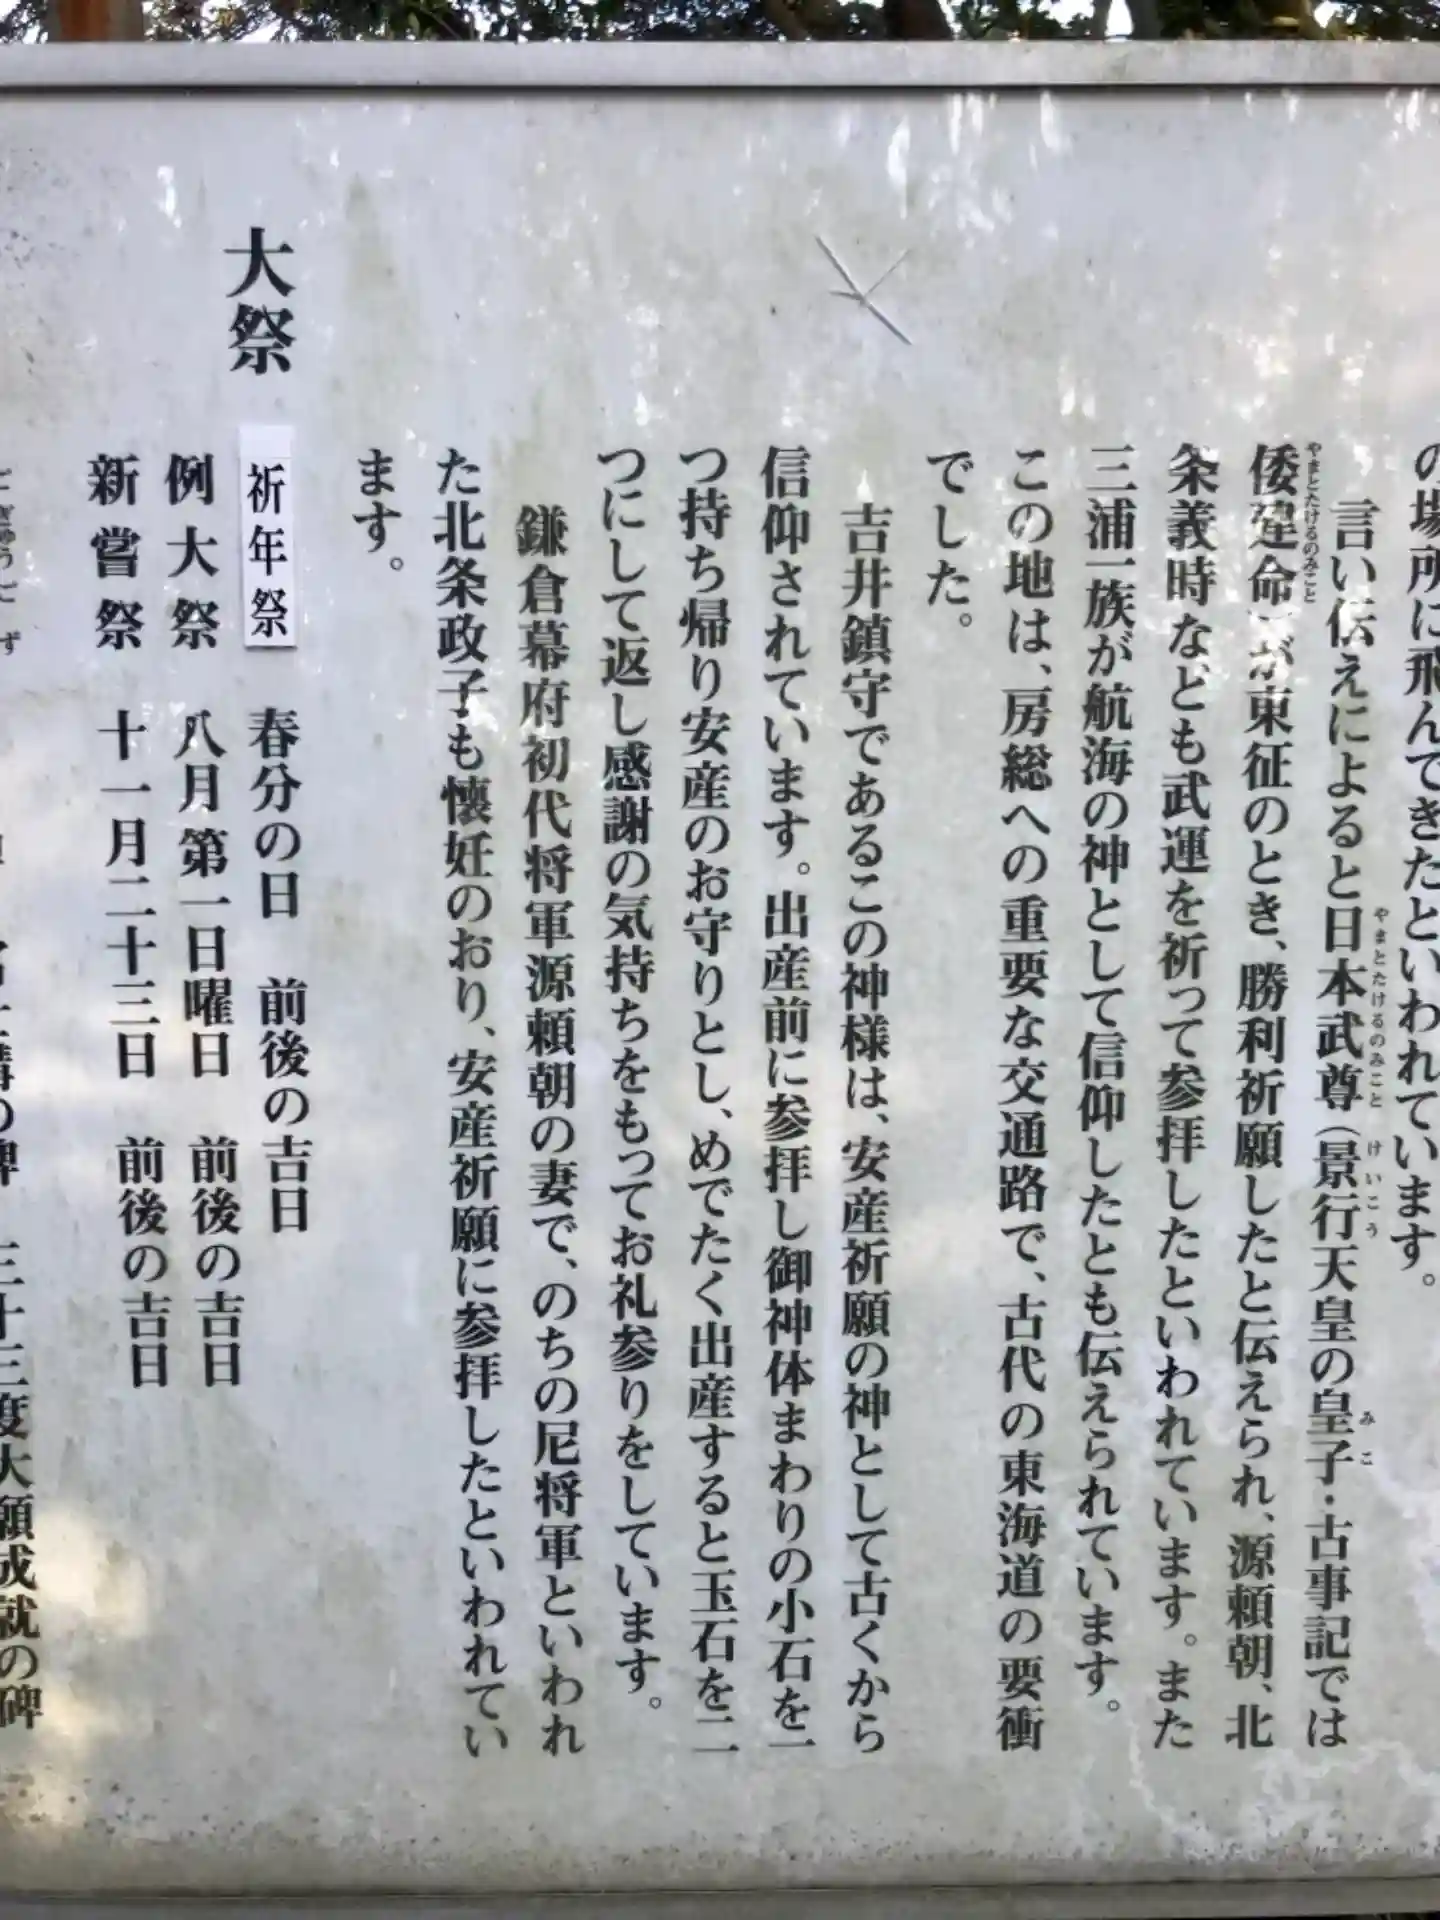 の場所に飛んできたといわれています。
言い伝えによると日本武尊（景行天皇の皇子・古事記では
やまとたけるのみこと けいこう みこ
倭建命）が東征のとき、勝利祈願したと伝えられ、源頼朝、北
やまとたけるのみこと
条義時なども武運を祈って参拝したといわれています。また
三浦一族が航海の神として信仰したとも伝えられています。
この地は、房総への重要な交通路で、古代の東海道の要衝
でした。
吉井鎮守であるこの神様は、安産祈願の神として古くから
信仰されています。出産前に参拝し御神体まわりの小石を一
つ持ち帰り安産のお守りとし、めでたく出産すると玉石を二
つにして返し感謝の気持ちをもってお礼参りをしています。
鎌倉幕府初代将軍源頼朝の妻で、のちの尼将軍といわれ
た北条政子も懐妊のおり、安産祈願に参拝したといわれてい
ます。
大祭
祈年祭 春分の日 前後の吉日
例大祭 八月第一日曜日 前後の吉日
新嘗祭 十一月二十三日 前後の吉日
の碑 三十三度大願成就の碑